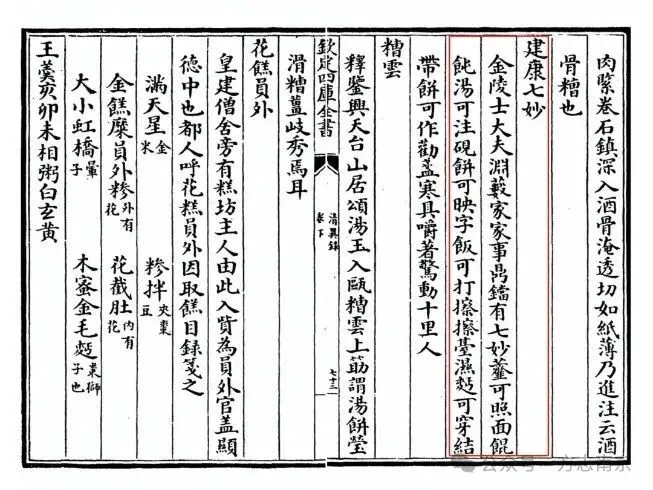 肉緊卷石鎮深入酒骨淹透切如紙薄乃進注云酒
骨糟也
建康七妙
金陵士大夫淵藪家家事鼎鐺有七妙韲可照面餛
飩湯可注硯餅可映字飯可打擦擦臺濕麪可穿結
帶餅可作勸盞寒具嚼著驚動十里人
糟雲
釋鑒興天台山居頌湯玉入甌糟雲上筯謂湯餅瑩
欽定四庫全書
清異録
卷下
七十三
滑糟薑岐秀焉耳
花餻員外
皇建僧舍旁有糕坊主人由此入貲為員外官盖顯
德中也都人呼花糕員外因取餻目録箋之
滿天星金米 糝拌夾棗豆
金餻糜員外糝外有花 花截肚内有花
大小虹橋暈子 木蜜金毛麪棗獅子也
王羹亥卯未相粥白玄黄
公众号·方志南京